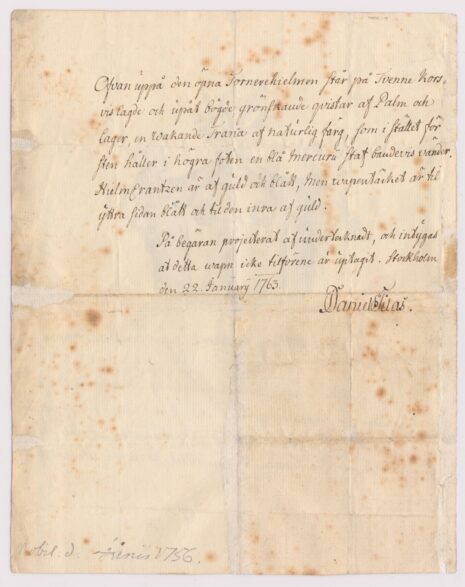 Ofvan uppå den öpna Tornerehielmen står på Tvenne Kors-
vis lagde och upåt bögde grönskande qvistar af Palm och
lager, en wakande Trana af naturlig färg, som i stället för
sten håller i högra foten en blå Mercurii staf bandevis wänder.
Hielm Crantzen är af guld och blått, Men wapentäcket är til
yttra sidan blått och til den inra af guld.
På begäran projecterat af undertecknadt, och intygas
at detta wapn icke tilförene är uptagit. Stockholm
den 22. January 1763.
Daniel
1756.